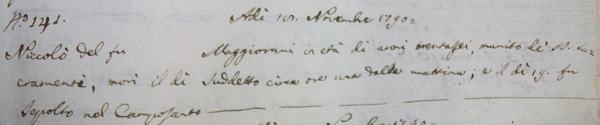 No. 141. Adì 18. Novembre 1790.
Niccolò del fu Maggiorani in età di anni trentasei, munito de' SS. Sa-
cramenti, morì il dì Suddetto circa ore una della mattina; e il dì 19. fu
Sepolto nel Camposanto